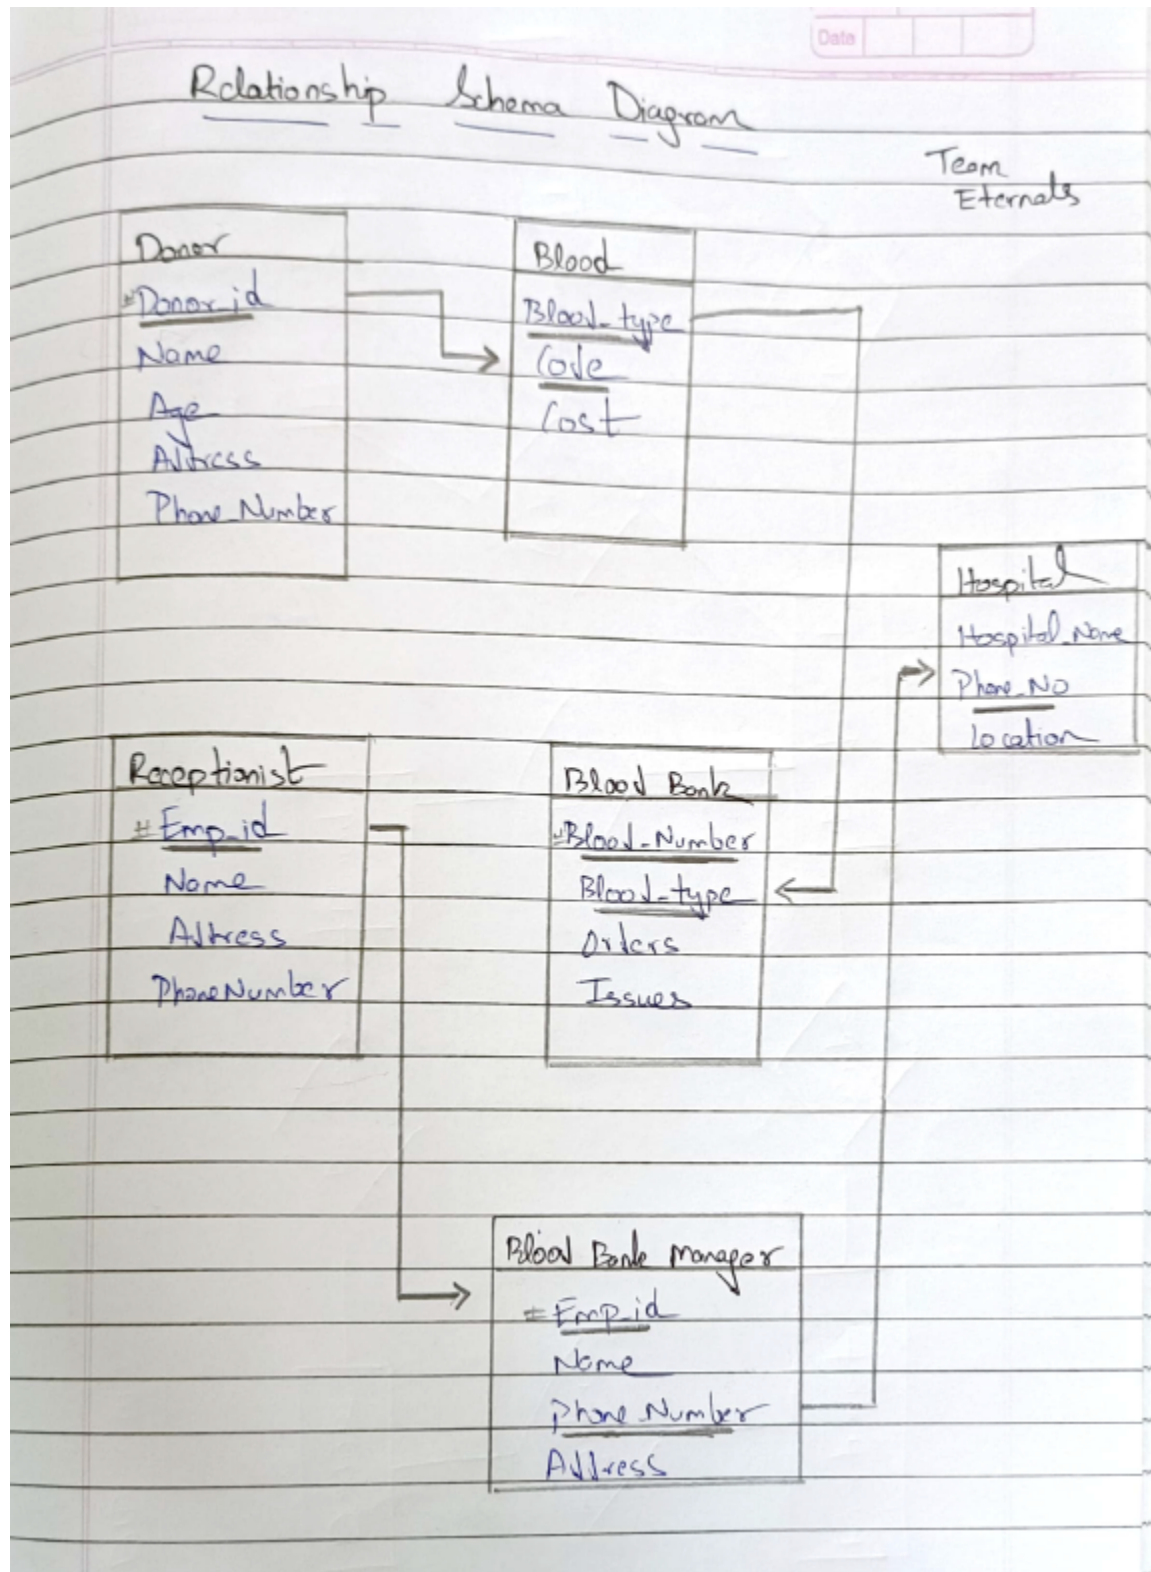 Date
Relationship Schema Diagram
Team
Eternals
Donor
#Donor_id
Name
Age
Address
Phone_Number
Blood
Blood_type
Code
Cost
Hospital
Hospital_Name
Phone_No
Location
Receptionist
# Emp_id
Name
Address
PhoneNumber
Blood Bank
#Blood_Number
Blood_type
Orders
Issues
Blood Bank Manager
# Emp_id
Name
Phone_Number
Address